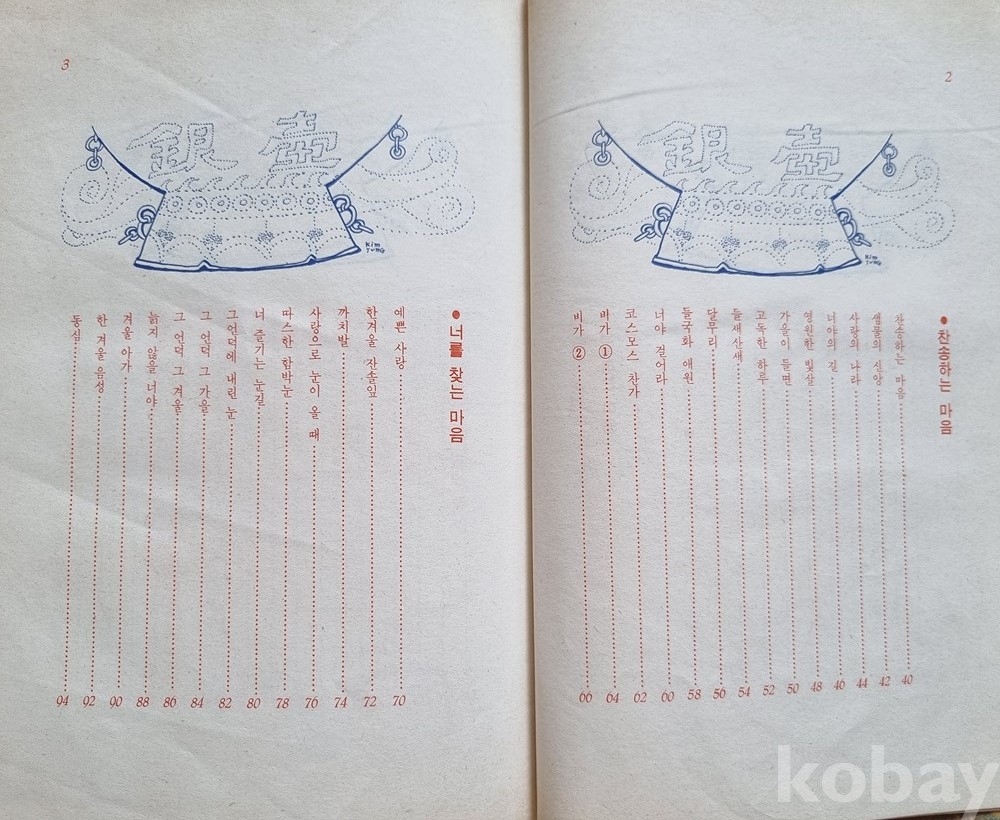 2
銀壺
Kim
Jung
●찬송하는 마음
찬송하는 마음 40
샘물의 신앙 42
사랑의 나라 44
너야의 길 46
영원한 빛살 48
가을이 들면 50
고독한 하루 52
들새산새 54
달무리 56
들국화 애원 58
너야 걸어라 60
코스모스 찬가 62
비가 ① 64
비가 ② 66
3
銀壺
Kim
Jung
●너를 찾는 마음
예쁜 사랑 70
한겨울 잔솔잎 72
까치발 74
사랑으로 눈이 올 때 76
따스한 함박눈 78
너 즐기는 눈길 80
그언덕에 내린 눈 82
그 언덕 그 가을 84
그 언덕 그 겨울 86
늙지 않을 너야 88
겨울 아가 90
한 겨울 음성 92
동심 94
kobay